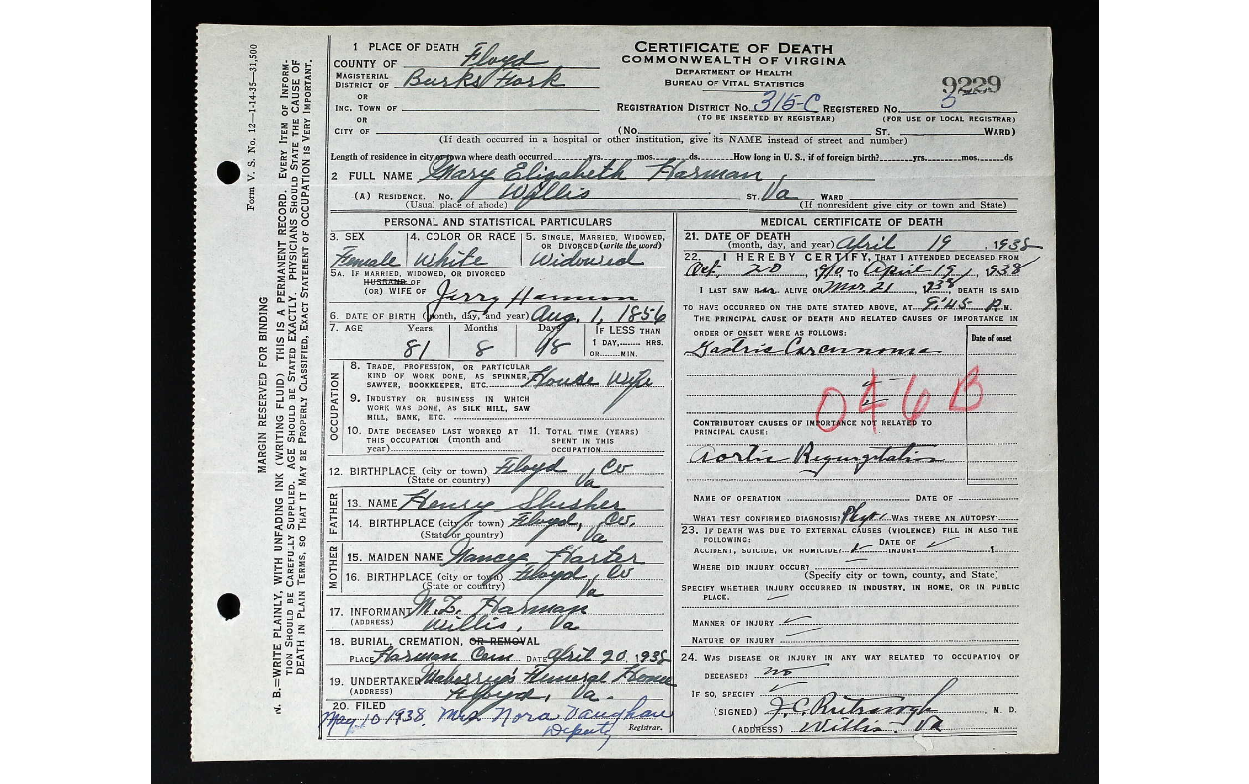 1 PLACE OF DEATH Floyd
COUNTY OF
MAGISTERIAL
DISTRICT OF Burks Fork
OR
INC. TOWN OF
OR
CITY OF
CERTIFICATE OF DEATH
COMMONWEALTH OF VIRGINIA
DEPARTMENT OF HEALTH
BUREAU OF VITAL STATISTICS
9229
REGISTRATION DISTRICT NO. 315-C REGISTERED NO. 5
(TO BE INSERTED BY REGISTRAR) (FOR USE OF LOCAL REGISTRAR)
(No. ST. WARD)
(If death occurred in a hospital or other institution, give its NAME instead of street and number)
Length of residence in city or town where death occurred yrs. mos. ds. How long in U. S., if of foreign birth? yrs. mos. ds
2 FULL NAME Mary Elizabeth Harman
(A) RESIDENCE, NO. Willis ST. Va WARD
(Usual place of abode) (If nonresident give city or town and State)
PERSONAL AND STATISTICAL PARTICULARS
3. SEX 4. COLOR OR RACE 5. SINGLE, MARRIED, WIDOWED,
OR DIVORCED (write the word)
Female White Widowed
5A. IF MARRIED, WIDOWED, OR DIVORCED
HUSBAND OF
(OR) WIFE OF Jerry Harmon
6. DATE OF BIRTH (month, day, and year) Aug. 1, 1856
7. AGE Years Months Days IF LESS THAN
1 DAY, HRS.
OR MIN.
81 8 18
OCCUPATION
8. TRADE, PROFESSION, OR PARTICULAR
KIND OF WORK DONE, AS SPINNER, House Wife
SAWYER, BOOKKEEPER, ETC.
9. INDUSTRY OR BUSINESS IN WHICH
WORK WAS DONE, AS SILK MILL, SAW
MILL, BANK, ETC.
10. DATE DECEASED LAST WORKED AT 11. TOTAL TIME (YEARS)
THIS OCCUPATION (month and SPENT IN THIS
year) OCCUPATION
12. BIRTHPLACE (city or town) Floyd Co
(State or country) Va
FATHER
13. NAME Henry Slusher
14. BIRTHPLACE (city or town) Floyd, Co.
(State or country) Va
MOTHER
15. MAIDEN NAME Nancy Harter
16. BIRTHPLACE (city or town) Floyd Co
(State or country) Va
17. INFORMANT M. L. Harman
(ADDRESS) Willis, Va
18. BURIAL, CREMATION, OR REMOVAL
PLACE Harman Cem DATE April 20, 1938
19. UNDERTAKER Maberry's Funeral Home
(ADDRESS) Floyd, Va.
20. FILED
May 10 1938 Mrs Nora Vaughan
Deputy Registrar.
MEDICAL CERTIFICATE OF DEATH
21. DATE OF DEATH
(month, day, and year) April 19, 1938
22. I HEREBY CERTIFY, THAT I ATTENDED DECEASED FROM
Oct. 20, TO April 19, 1938
I LAST SAW HER ALIVE ON Mar 21, 1938 DEATH IS SAID
TO HAVE OCCURRED ON THE DATE STATED ABOVE, AT 9:45 P.M.
THE PRINCIPAL CAUSE OF DEATH AND RELATED CAUSES OF IMPORTANCE IN
ORDER OF ONSET WERE AS FOLLOWS: Date of onset
Gastric Carcinoma
046B
CONTRIBUTORY CAUSES OF IMPORTANCE NOT RELATED TO
PRINCIPAL CAUSE:
Aortic Regurgitation
NAME OF OPERATION DATE OF
WHAT TEST CONFIRMED DIAGNOSIS? Phy. WAS THERE AN AUTOPSY
23. IF DEATH WAS DUE TO EXTERNAL CAUSES (VIOLENCE) FILL IN ALSO THE
FOLLOWING: DATE OF
ACCIDENT, SUICIDE, OR HOMICIDE? INJURY
WHERE DID INJURY OCCUR?
(Specify city or town, county, and State)
SPECIFY WHETHER INJURY OCCURRED IN INDUSTRY, IN HOME, OR IN PUBLIC
PLACE.
MANNER OF INJURY
NATURE OF INJURY
24. WAS DISEASE OR INJURY IN ANY WAY RELATED TO OCCUPATION OF
DECEASED? no
IF SO, SPECIFY
(SIGNED) J. C. Rutrough, M. D.
(ADDRESS) Willis Va
Form V. S. No. 12—1-14-35—31,500
MARGIN RESERVED FOR BINDING
N. B.—WRITE PLAINLY, WITH UNFADING INK (WRITING FLUID) THIS IS A PERMANENT RECORD. EVERY ITEM OF INFORM-
TION SHOULD BE CAREFULLY SUPPLIED. AGE SHOULD BE STATED EXACTLY. PHYSICIANS SHOULD STATE THE CAUSE OF
DEATH IN PLAIN TERMS, SO THAT IT MAY BE PROPERLY CLASSIFIED, EXACT STATEMENT OF OCCUPATION IS VERY IMPORTANT.